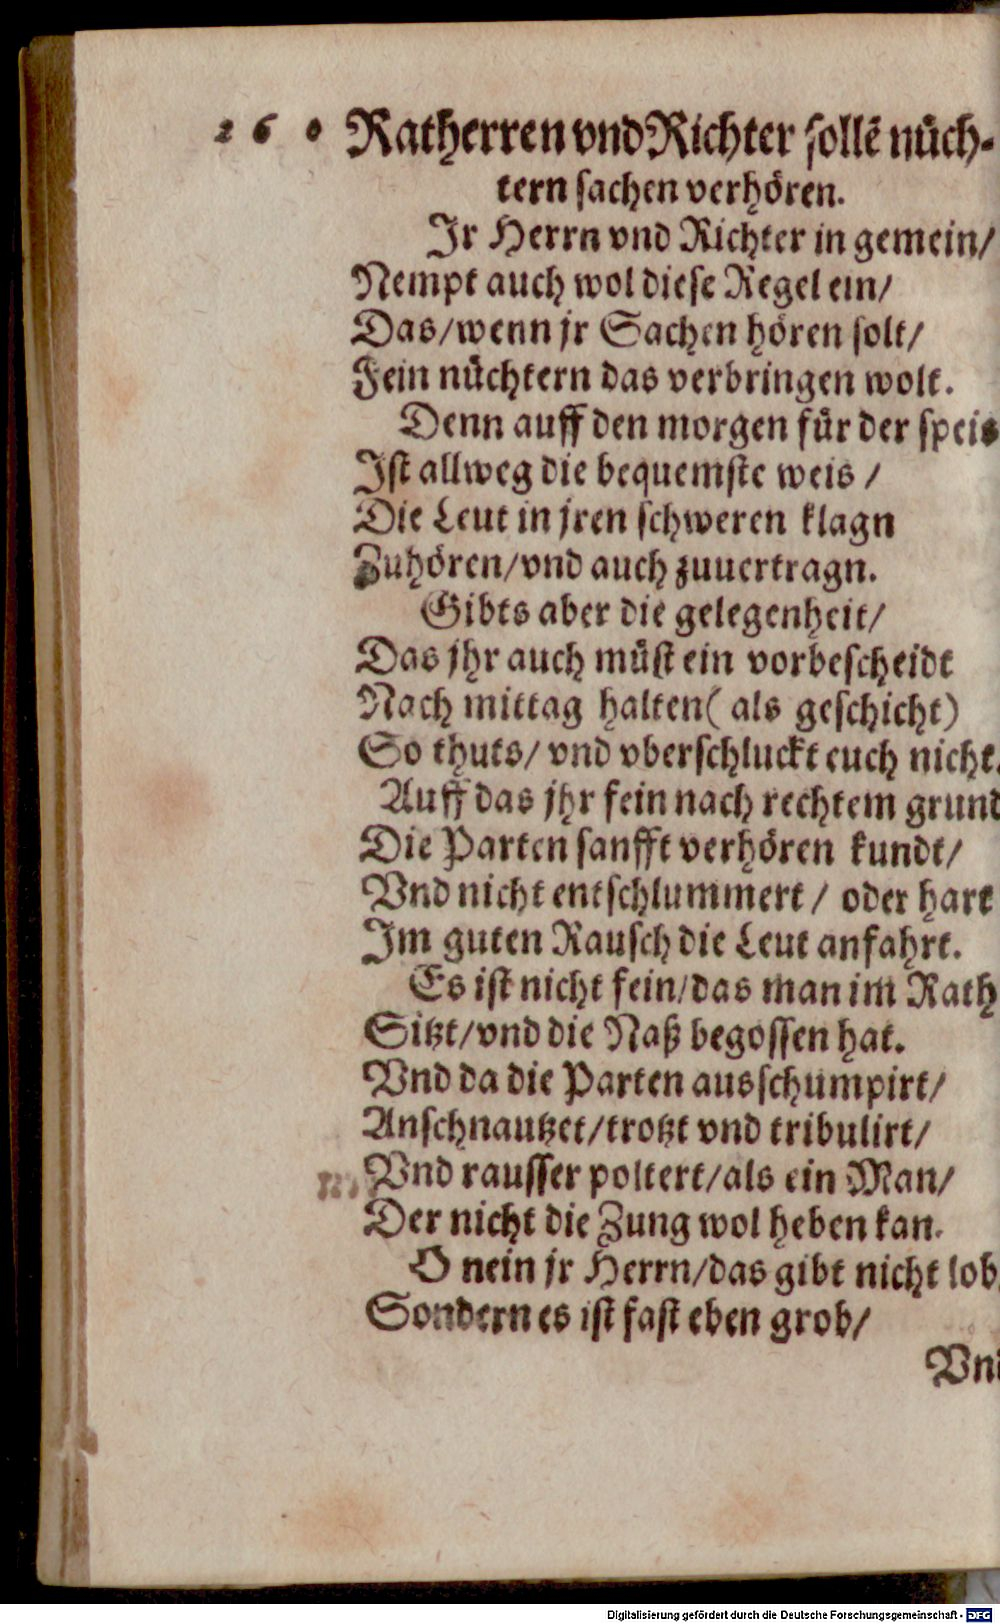 260 Ratherren vnd Richter sollẽ nüch-
tern sachen verhören.
Jr Herrn vnd Richter in gemein/
Nempt auch wol diese Regel ein/
Das/wenn jr Sachen hören solt/
Fein nüchtern das verbringen wolt.
Denn auff den morgen für der speis
Jst allweg die bequemste weis /
Die Leut in jren schweren klagn
Zuhören/vnd auch zuuertragn.
Gibts aber die gelegenheit/
Das jhr auch müst ein vorbescheidt
Nach mittag halten( als geschicht)
So thuts/ vnd vberschluckt euch nicht.
Auff das jhr fein nach rechtem grund
Die Parten sanfft verhören kundt/
Vnd nicht entschlummert / oder hart
Jm guten Rausch die Leut anfahrt.
Es ist nicht fein/das man im Rath
Sitzt/vnd die Naß begossen hat.
Vnd da die Parten ausschumpirt/
Anschnautzet/trotzt vnd tribulirt/
Vnd rausser poltert/als ein Man/
Der nicht die Zung wol heben kan.
O nein jr Herrn/das gibt nicht lob,
Sondern es ist fast eben grob/
Vnd
Digitalisierung gefördert durch die Deutsche Forschungsgemeinschaft - DFG